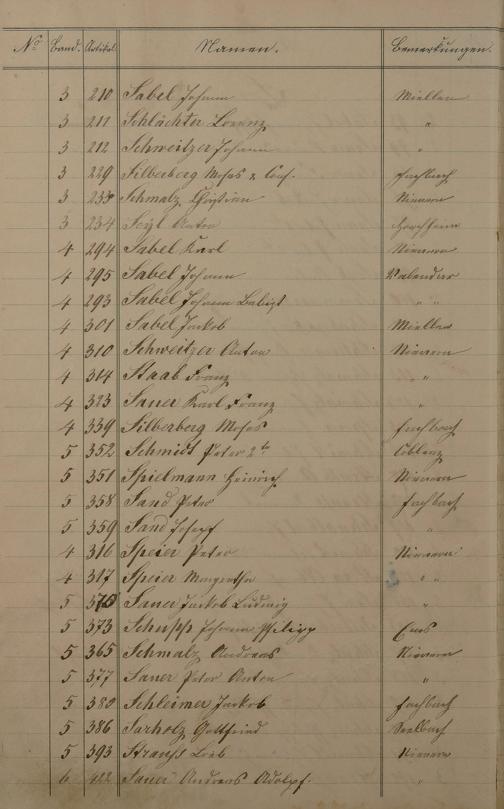 No Band. Artikel. Namen. Bemerkungen.
3 210 Sabel Johann Miellen
3 211 Schlächter Lorenz "
3 212 Schweitzer Johann "
3 229 Silberberg Moses & Cons. Fachbach
3 233 Schmalz Christian Nievern
3 234 Anton
4 294 Sabel Karl Nievern
4 295 Sabel Johann Valendar
4 293 Sabel Johann Babtist " "
4 301 Sabel Jackob Miellen
4 310 Schweitzer Anton Nievern
4 314 Staab Franz "
4 323 Sauer Karl Franz "
4 339 Silberberg Moses Fachbach
5 352 Schmidt Peter 2te Coblenz
5 351 Spielmann Heinrich Nievern
5 358 Sand Peter Fachbach
5 359 Sand Josef "
4 316 Speier Peter Nievern
4 317 Speier Margretha " "
5 370 Sauer Jackob Ludwig "
5 373 Schupp Johann Philipp Ems
5 365 Schmalz Andreas Nievern
5 377 Sauer Peter Anton "
5 380 Schleimer Jackob Fachbach
5 386 Sarholz Gottfried Seelbach
5 393 Strauß Löeb Nievern
6 422 Sauer Andreas Adolpf. "